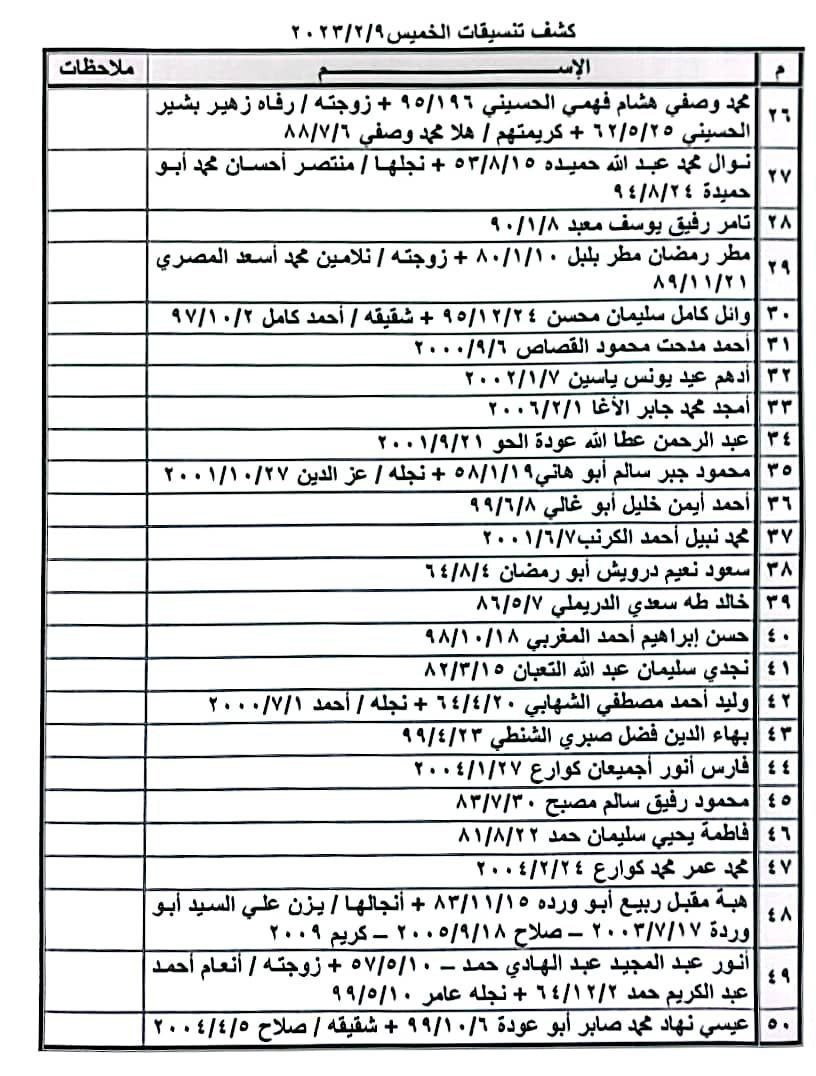 كشف تنسيقات الخميس ٢٠٢٣/٢/٩
م الإســـــــــم ملاحظات
٢٦ محمد وصفي هشام فهمي الحسيني ٩٥/١٩٦ + زوجته / رفاه زهير بشير
الحسيني ٦٢/٥/٢٥ + كريمتهم / هلا محمد وصفي ٨٨/٧/٦
٢٧ نوال محمد عبد الله حميده ٥٣/٨/١٥ + نجلها / منتصر أحسان محمد أبو
حميدة ٩٤/٨/٢٤
٢٨ تامر رفيق يوسف معبد ٩٠/١/٨
٢٩ مطر رمضان مطر بلبل ٨٠/١/١٠ + زوجته / نلامين محمد أسعد المصري
٨٩/١١/٢١
٣٠ وائل كامل سليمان محسن ٩٥/١٢/٢٤ + شقيقه / أحمد كامل ٩٧/١٠/٢
٣١ أحمد مدحت محمود القصاص ٢٠٠٠/٩/٦
٣٢ أدهم عيد يونس ياسين ٢٠٠٢/١/٧
٣٣ أمجد محمد جابر الأغا ٢٠٠٦/٢/١
٣٤ عبد الرحمن عطا الله عودة الحو ٢٠٠١/٩/٢١
٣٥ محمود جبر سالم أبو هاني٥٨/١/١٩ + نجله / عز الدين ٢٠٠١/١٠/٢٧
٣٦ أحمد أيمن خليل أبو غالي ٩٩/٦/٨
٣٧ محمد نبيل أحمد الكرنب٢٠٠١/٦/٧
٣٨ سعود نعيم درويش أبو رمضان ٦٤/٨/٤
٣٩ خالد طه سعدي الدريملي ٨٦/٥/٧
٤٠ حسن إبراهيم أحمد المغربي ٩٨/١٠/١٨
٤١ نجدي سليمان عبد الله التعبان ٨٢/٣/١٥
٤٢ وليد أحمد مصطفي الشهابي ٦٤/٤/٢٠ + نجله / أحمد ٢٠٠٠/٧/١
٤٣ بهاء الدين فضل صبري الشنطي ٩٩/٤/٢٣
٤٤ فارس أنور أجميعان كوارع ٢٠٠٤/١/٢٧
٤٥ محمود رفيق سالم مصبح ٨٣/٧/٣٠
٤٦ فاطمة يحيي سليمان حمد ٨١/٨/٢٢
٤٧ محمد عمر محمد كوارع ٢٠٠٤/٢/٢٤
٤٨ هبة مقبل ربيع أبو ورده ٨٣/١١/١٥ + أنجالها / يزن علي السيد أبو
وردة ٢٠٠٣/٧/١٧ – صلاح ٢٠٠٥/٩/١٨ – كريم ٢٠٠٩
٤٩ أنور عبد المجيد عبد الهادي حمد – ٥٧/٥/١٠ + زوجته / أنعام أحمد
عبد الكريم حمد ٦٤/١٢/٢ + نجله عامر ٩٩/٥/١٠
٥٠ عيسي نهاد محمد صابر أبو عودة ٩٩/١٠/٦ + شقيقه / صلاح ٢٠٠٤/٤/٥